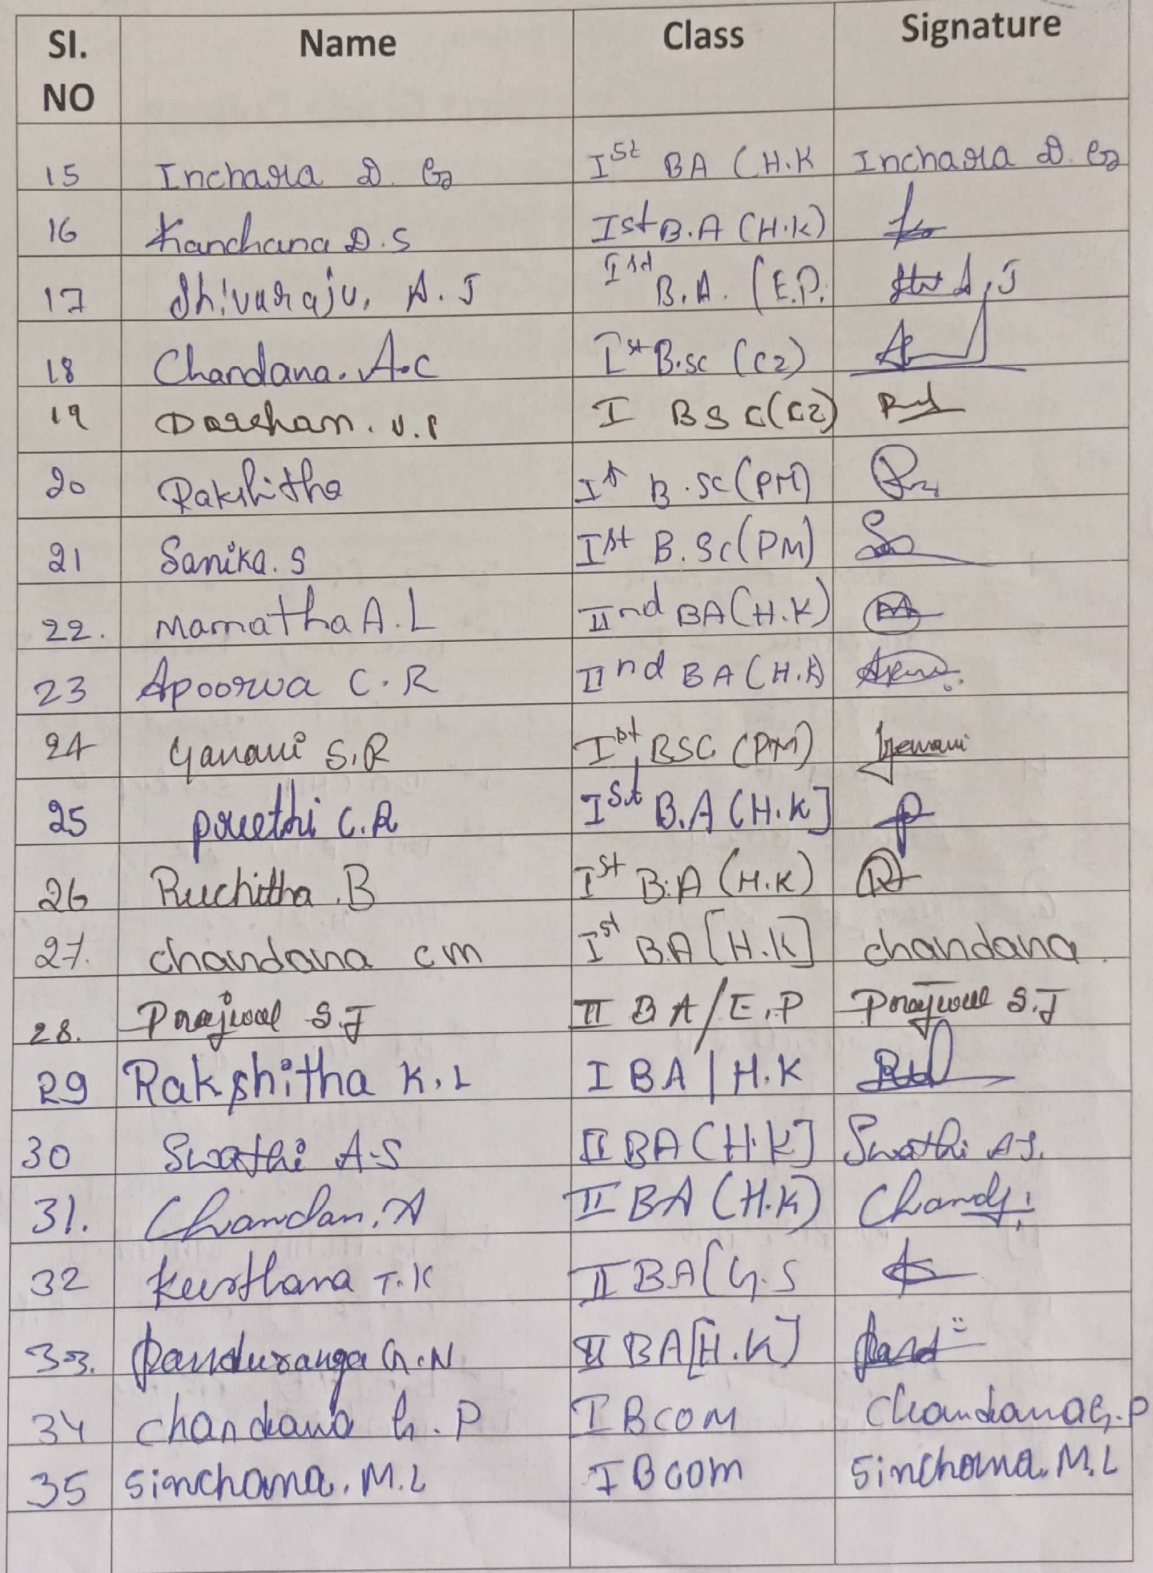 Sl. NO Name Class Signature
15 Inchara D. G I St BA (H.K Inchara D. G
16 Kanchana D.S Ist B.A (H.K)
17 Shivaraju. A. J Ist B.A. (E.P. A.J
18 Chandana. A.C I st B.sc (CZ)
19 Darshan. V.P I BSC (CZ)
20 Rakshitha Ist B.SC (PM)
21 Sanika. S Ist B.Sc (PM)
22. Mamatha A.L IInd BA (H.K)
23 Apoorva C.R IInd BA (H.K)
24 Yanavi S.R Ist BSC (PM)
25 preethi C.R ISt B.A (H.K]
26 Ruchitha .B Ist B.A (H.K)
27. chandana cm Ist B.A [H.K] chandana
28. Prajwal S.J II BA/E.P Prajwal S.J
29 Rakshitha K.L I BA | H.K
30 Swathi A.S II BA (H.K] Swathi A.S.
31. Chandan. A II BA (H.K)
32 keerthana T.K II BA (G.S
33. Panduranga G.N II BA [H.K]
34 Chandana G.P I BCOM Chandana G.P
35 Sinchana. M.L I BCOM Sinchana. M.L